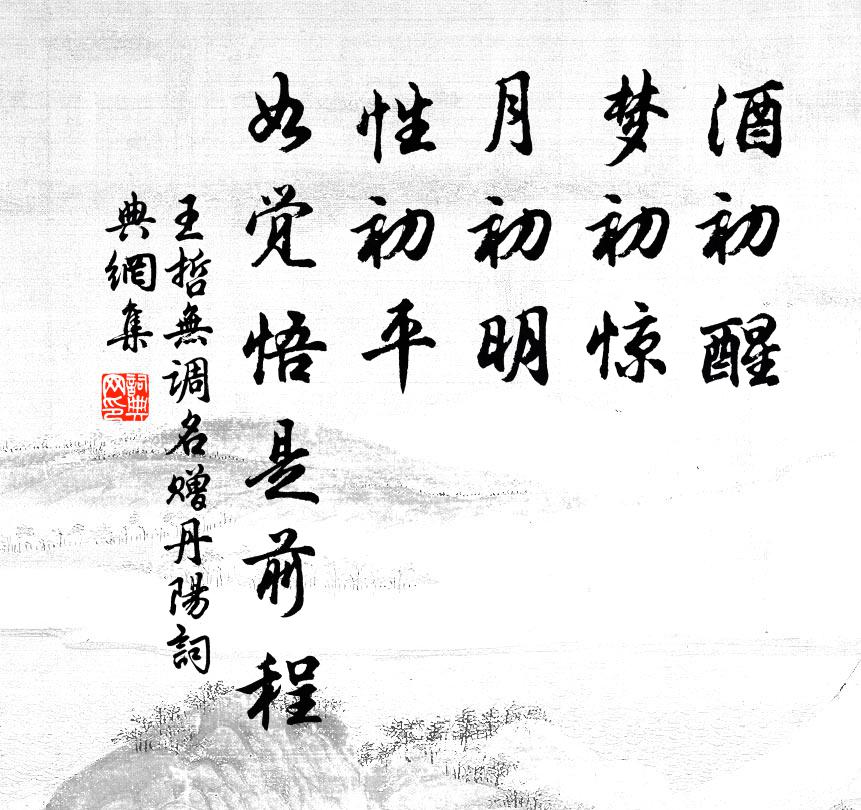 酒初醒
梦初惊
月初明
性初平
如觉悟是前程
王哲無调名赠丹陽詞
典網集
詞典网印